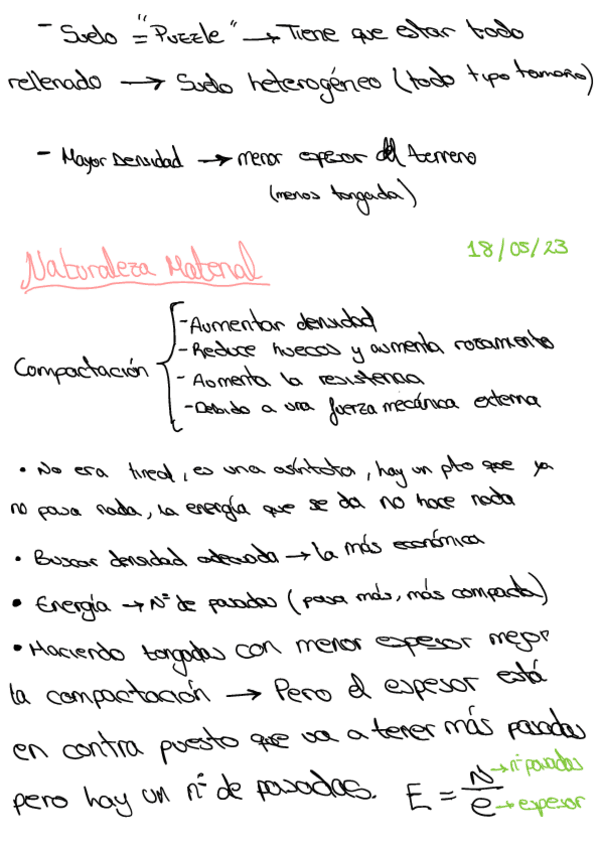 - Suelo = "Puzzle" → Tiene que estar todo
rellenado → Suelo heterogéneo (todo tipo tamaño)
- Mayor Densidad → menor espesor del terreno
(menos tongada)
18/05/23
Naturaleza Material
Compactación
- Aumentar densidad
- Reduce huecos y aumenta rozamiento
- Aumenta la resistencia
- Debido a una fuerza mecánica externa
• No era lineal, es una asíntota, hay un pto que ya
no pasa nada, la energía que se da no hace nada
• Buscar densidad adecuada → la más económica
• Energía → Nº de pasadas (pasa más, más compacta)
• Haciendo tongadas con menor espesor mejor
la compactación → Pero el espesor está
en contra puesto que va a tener más pasadas
pero hay un nº de pasadas. E = N/e
→ nº pasadas
→ espesor